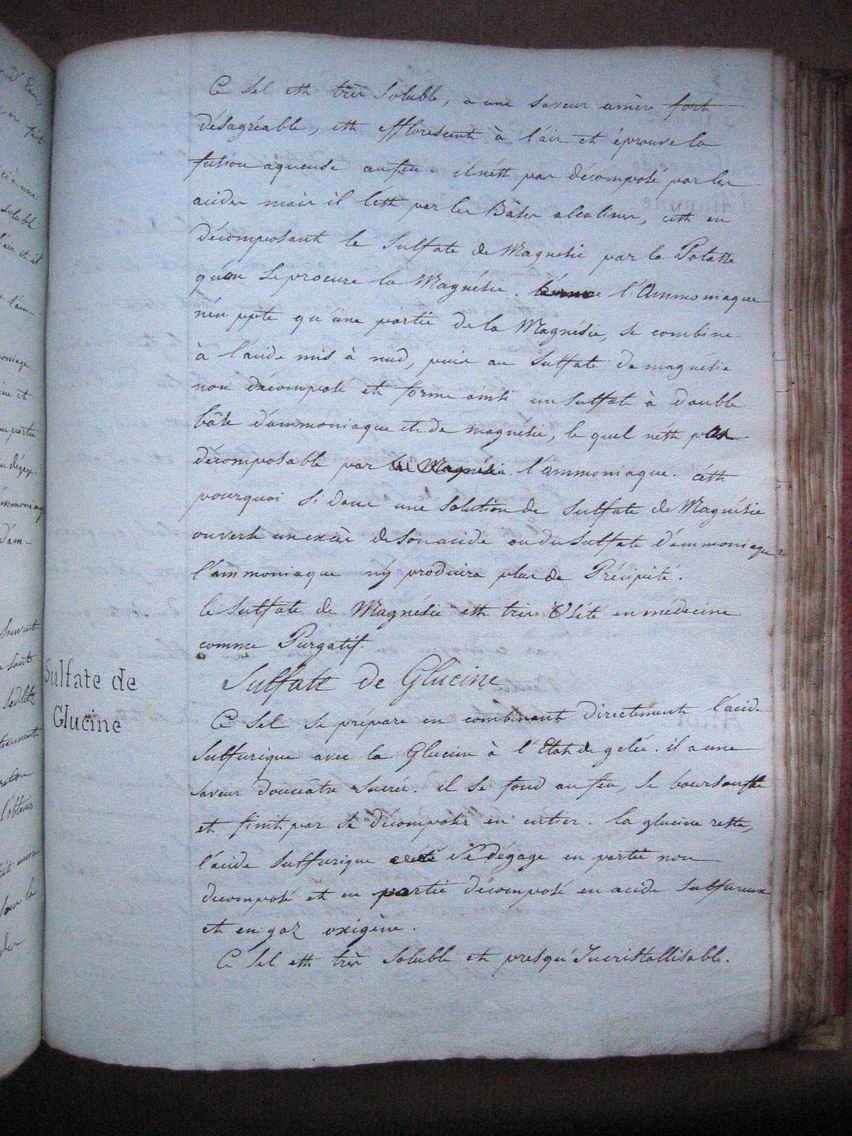 Ce sel est très soluble, a une saveur amère fort
désagréable, est efflorescent à l'air et éprouve la
fusion aqueuse au feu. il n'est pas décomposé par les
acides mais il l'est par les Bâses alcalines, c'est en
décomposant le Sulfate de Magnésie par la Potasse
qu'on se procure la Magnésie. l'Ammoniaque
n'en ppte qu'une partie de la Magnesie, se combine
à l'acide mis à nud, puis au Sulfate de magnesie
non décomposé et forme ainsi un Sulfate à double
bâse d'ammoniaque et de magnesie, le quel n'est pas
décomposable par l'ammoniaque. C'est
pourquoi si dans une solution de Sulfate de Magnésie
on verse un excès de son acide ou du Sulfate d'ammoniaque
l'ammoniaque n'y produira plus de Précipité.
le Sulfate de Magnésie est très Usité en médecine
comme Purgatif.
Sulfate de
Glucine
Sulfate de Glucine
Ce Sel se prépare en combinant directement l'acide
Sulfurique avec la Glucine à l'Etat de gelée. il a une
saveur douceâtre sucrée. il se fond au feu, se boursouffle
et finit par se décomposer en entier. la glucine reste,
l'acide Sulfurique se dégage en partie non
décomposé et en partie décomposé en acide Sulfureux
et en gaz oxigène.
Ce Sel est très soluble et presqu'Incristallisable.